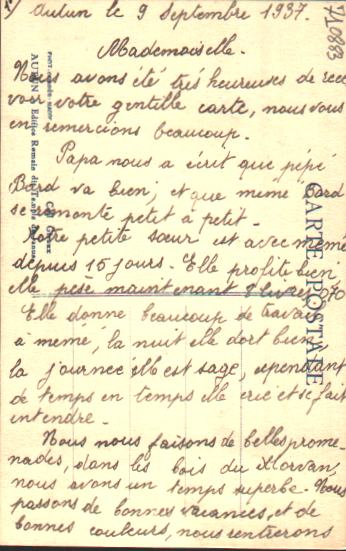 Autun le 9 Septembre 1937.
Mademoiselle.
Nous avons été très heureuses de rece
voir votre gentille carte, nous vous
en remercions beaucoup.
Papa nous a écrit que pépé
Bard va bien, et que mémé Bard
se remonte petit à petit.
Notre petite sœur est avec mémé
depuis 15 jours. Elle profite bien
elle pèse maintenant livres 070
Elle donne beaucoup de travail
à mémé, la nuit elle dort bien,
la journée elle est sage, cependant
de temps en temps elle crie et se fait
entendre.
Nous nous faisons de belles prome-
nades, dans les bois du Morvan,
nous avons un temps superbe. Nous
passons de bonnes vacances, et de
bonnes couleurs, nous rentrerons
CARTE POSTALE
AUTUN Edifice Romain dit Temple de Janus